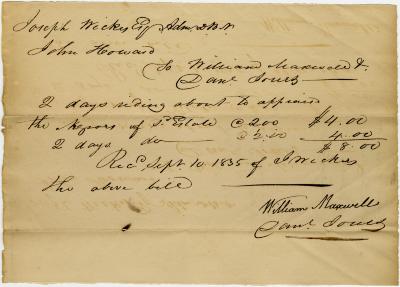 Joseph Wickes Esq Adm D B N
John Howard
To William Maxwell &
Danl Jones
2 days riding about to appraise
the Negroes of sd Estate @ 200 $4.00
2 days do @ 2.00 4.00
$8.00
Recd Sept 10 1835 of J Wickes
the above bill
William Maxwell
Danl Jones